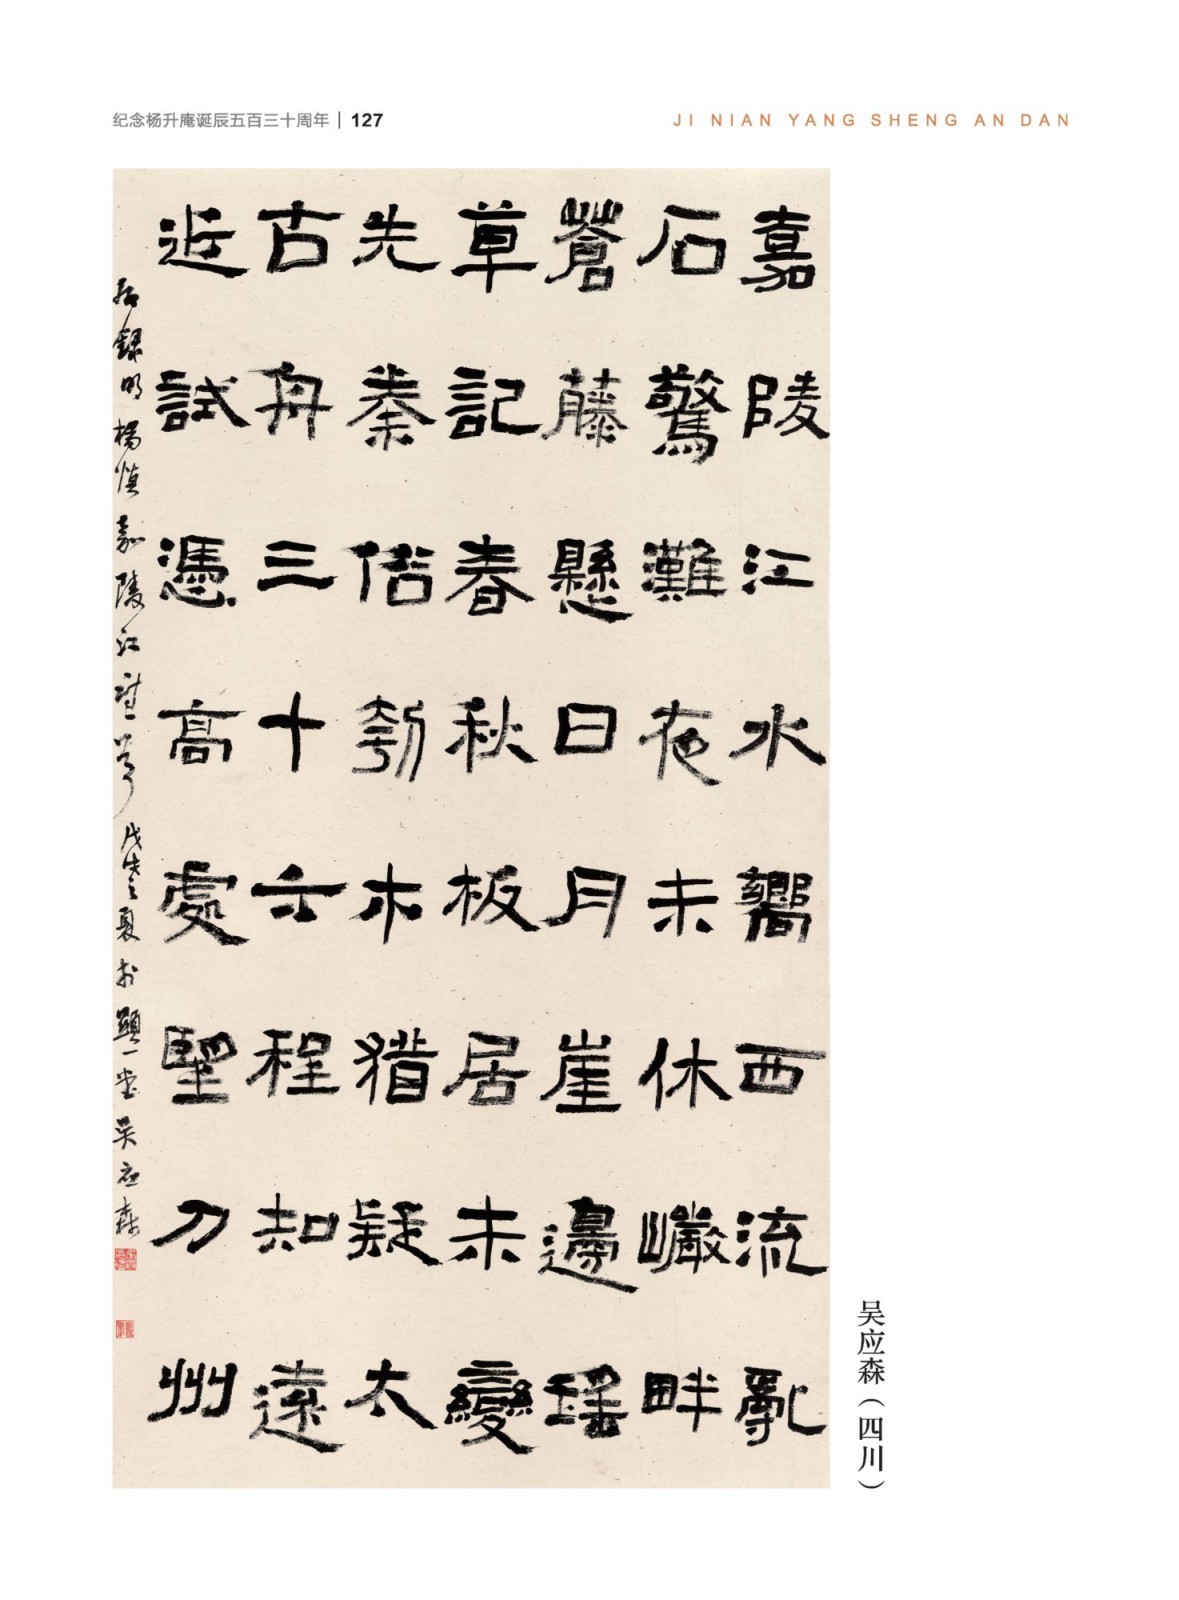 纪念杨升庵诞辰五百三十周年 | 127
JI NIAN YANG SHENG AN DAN
嘉陵江水嚮西流亂
石驚灘夜未休巘畔
蒼藤懸日月崖邊瑶
草記春秋板居未變
先秦俗刳木猶疑太
古舟三十六程知遠
近試憑高處望刀州
録明楊慎嘉陵江 戊戌之夏於顯一堂吴应森
吴应森（四川）